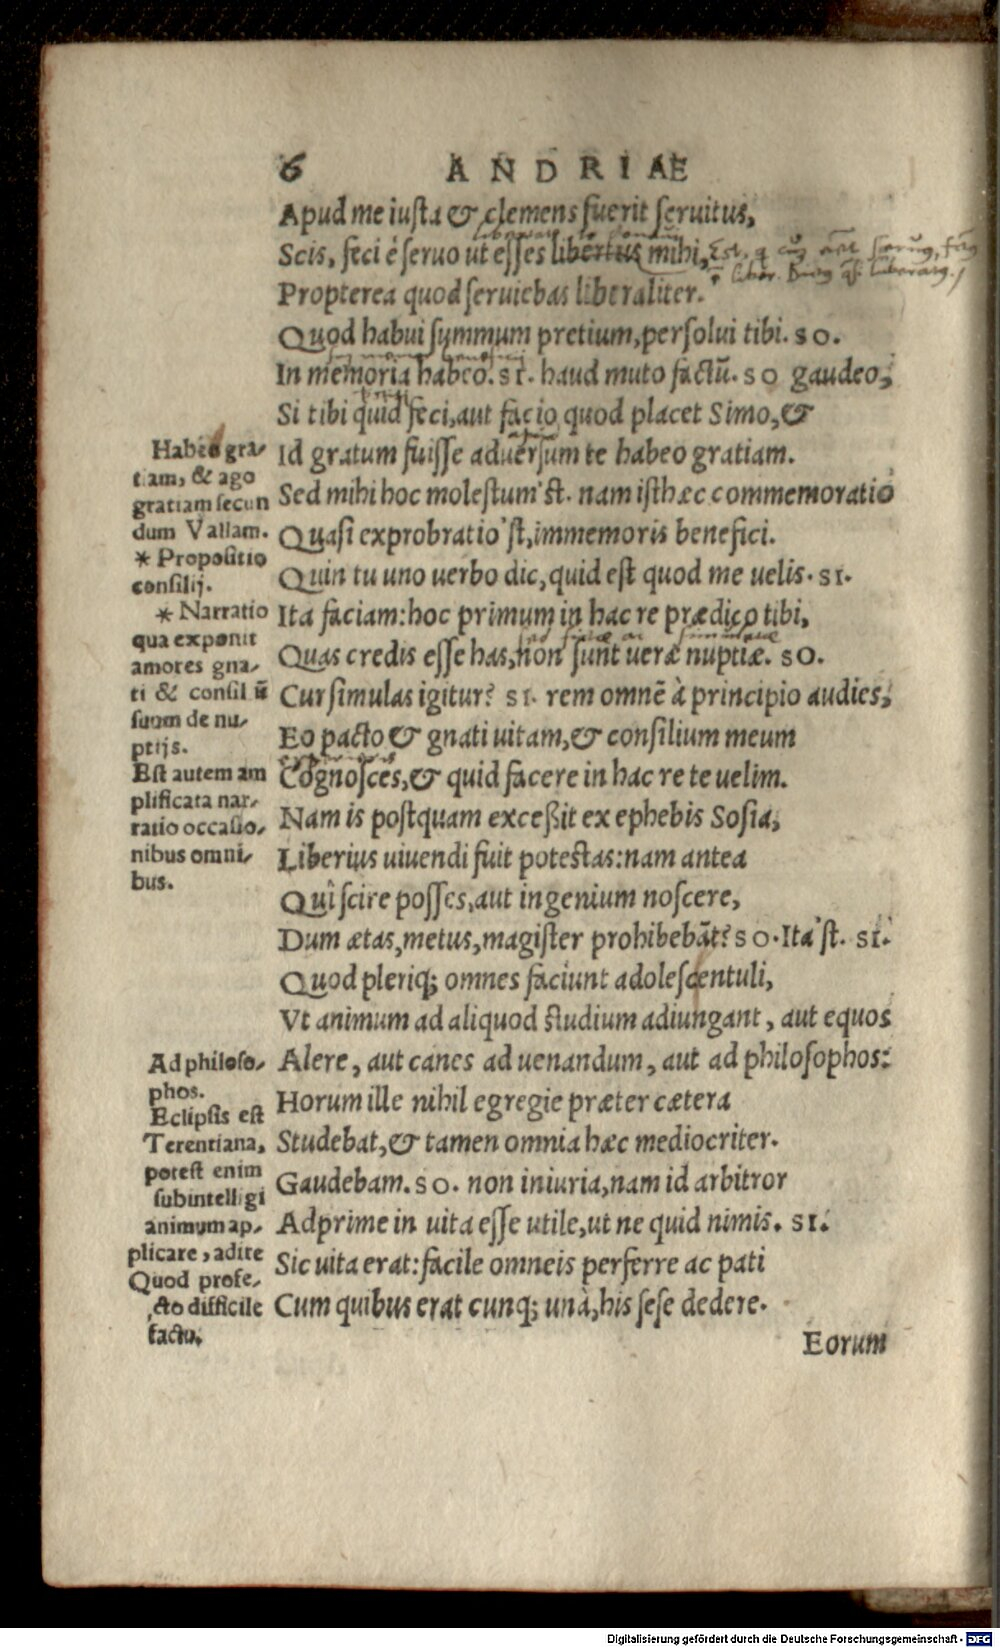 6 ANDRIAE
Apud me iusta & clemens fuerit seruitus,
Scis, feci è seruo ut esses libertus mihi,
Propterea quod seruiebas liberaliter.
Quod habui summum pretium, persolui tibi. SO.
In memoria habeo. SI. haud muto factū. SO gaudeo,
Si tibi quid feci, aut facio quod placet Simo, &
Id gratum fuisse aduersum te habeo gratiam.
Sed mihi hoc molestum'st. nam isthæc commemoratio
Quasi exprobratio'st, immemoris benefici.
Quin tu uno uerbo dic, quid est quod me uelis. SI.
Ita faciam: hoc primum in hac re prædico tibi,
Quas credis esse has, non sunt ueræ nuptiæ. SO.
Cur simulas igitur? SI. rem omnē à principio audies,
Eo pacto & gnati uitam, & consilium meum
Cognosces, & quid facere in hac re te uelim.
Nam is postquam exceßit ex ephebis Sosia,
Liberius uiuendi fuit potestas: nam antea
Quî scire posses, aut ingenium noscere,
Dum ætas, metus, magister prohibebāt? SO. Ita'st. SI.
Quod pleriq; omnes faciunt adolescentuli,
Vt animum ad aliquod studium adiungant, aut equos
Alere, aut canes ad uenandum, aut ad philosophos:
Horum ille nihil egregie præter cætera
Studebat, & tamen omnia hæc mediocriter.
Gaudebam. SO. non iniuria, nam id arbitror
Adprime in uita esse utile, ut ne quid nimis. SI.
Sic uita erat: facile omneis perferre ac pati
Cum quibus erat cunq; unà, his sese dedere.
Eorum
Habeo gra-
tiam, & ago
gratiam secun
dum Vallam.
* Propositio
consilij.
* Narratio
qua exponit
amores gna-
ti & consiliū
suum de nu-
ptijs.
Est autem am
plificata nar-
ratio occasio-
nibus omni-
bus.
Ad philoso-
phos.
Eclipsis est
Terentiana,
potest enim
subintelligi
animum ap-
plicare, adite
Quod profe-
cto difficile
factu.
Digitalisierung gefördert durch die Deutsche Forschungsgemeinschaft - DFG